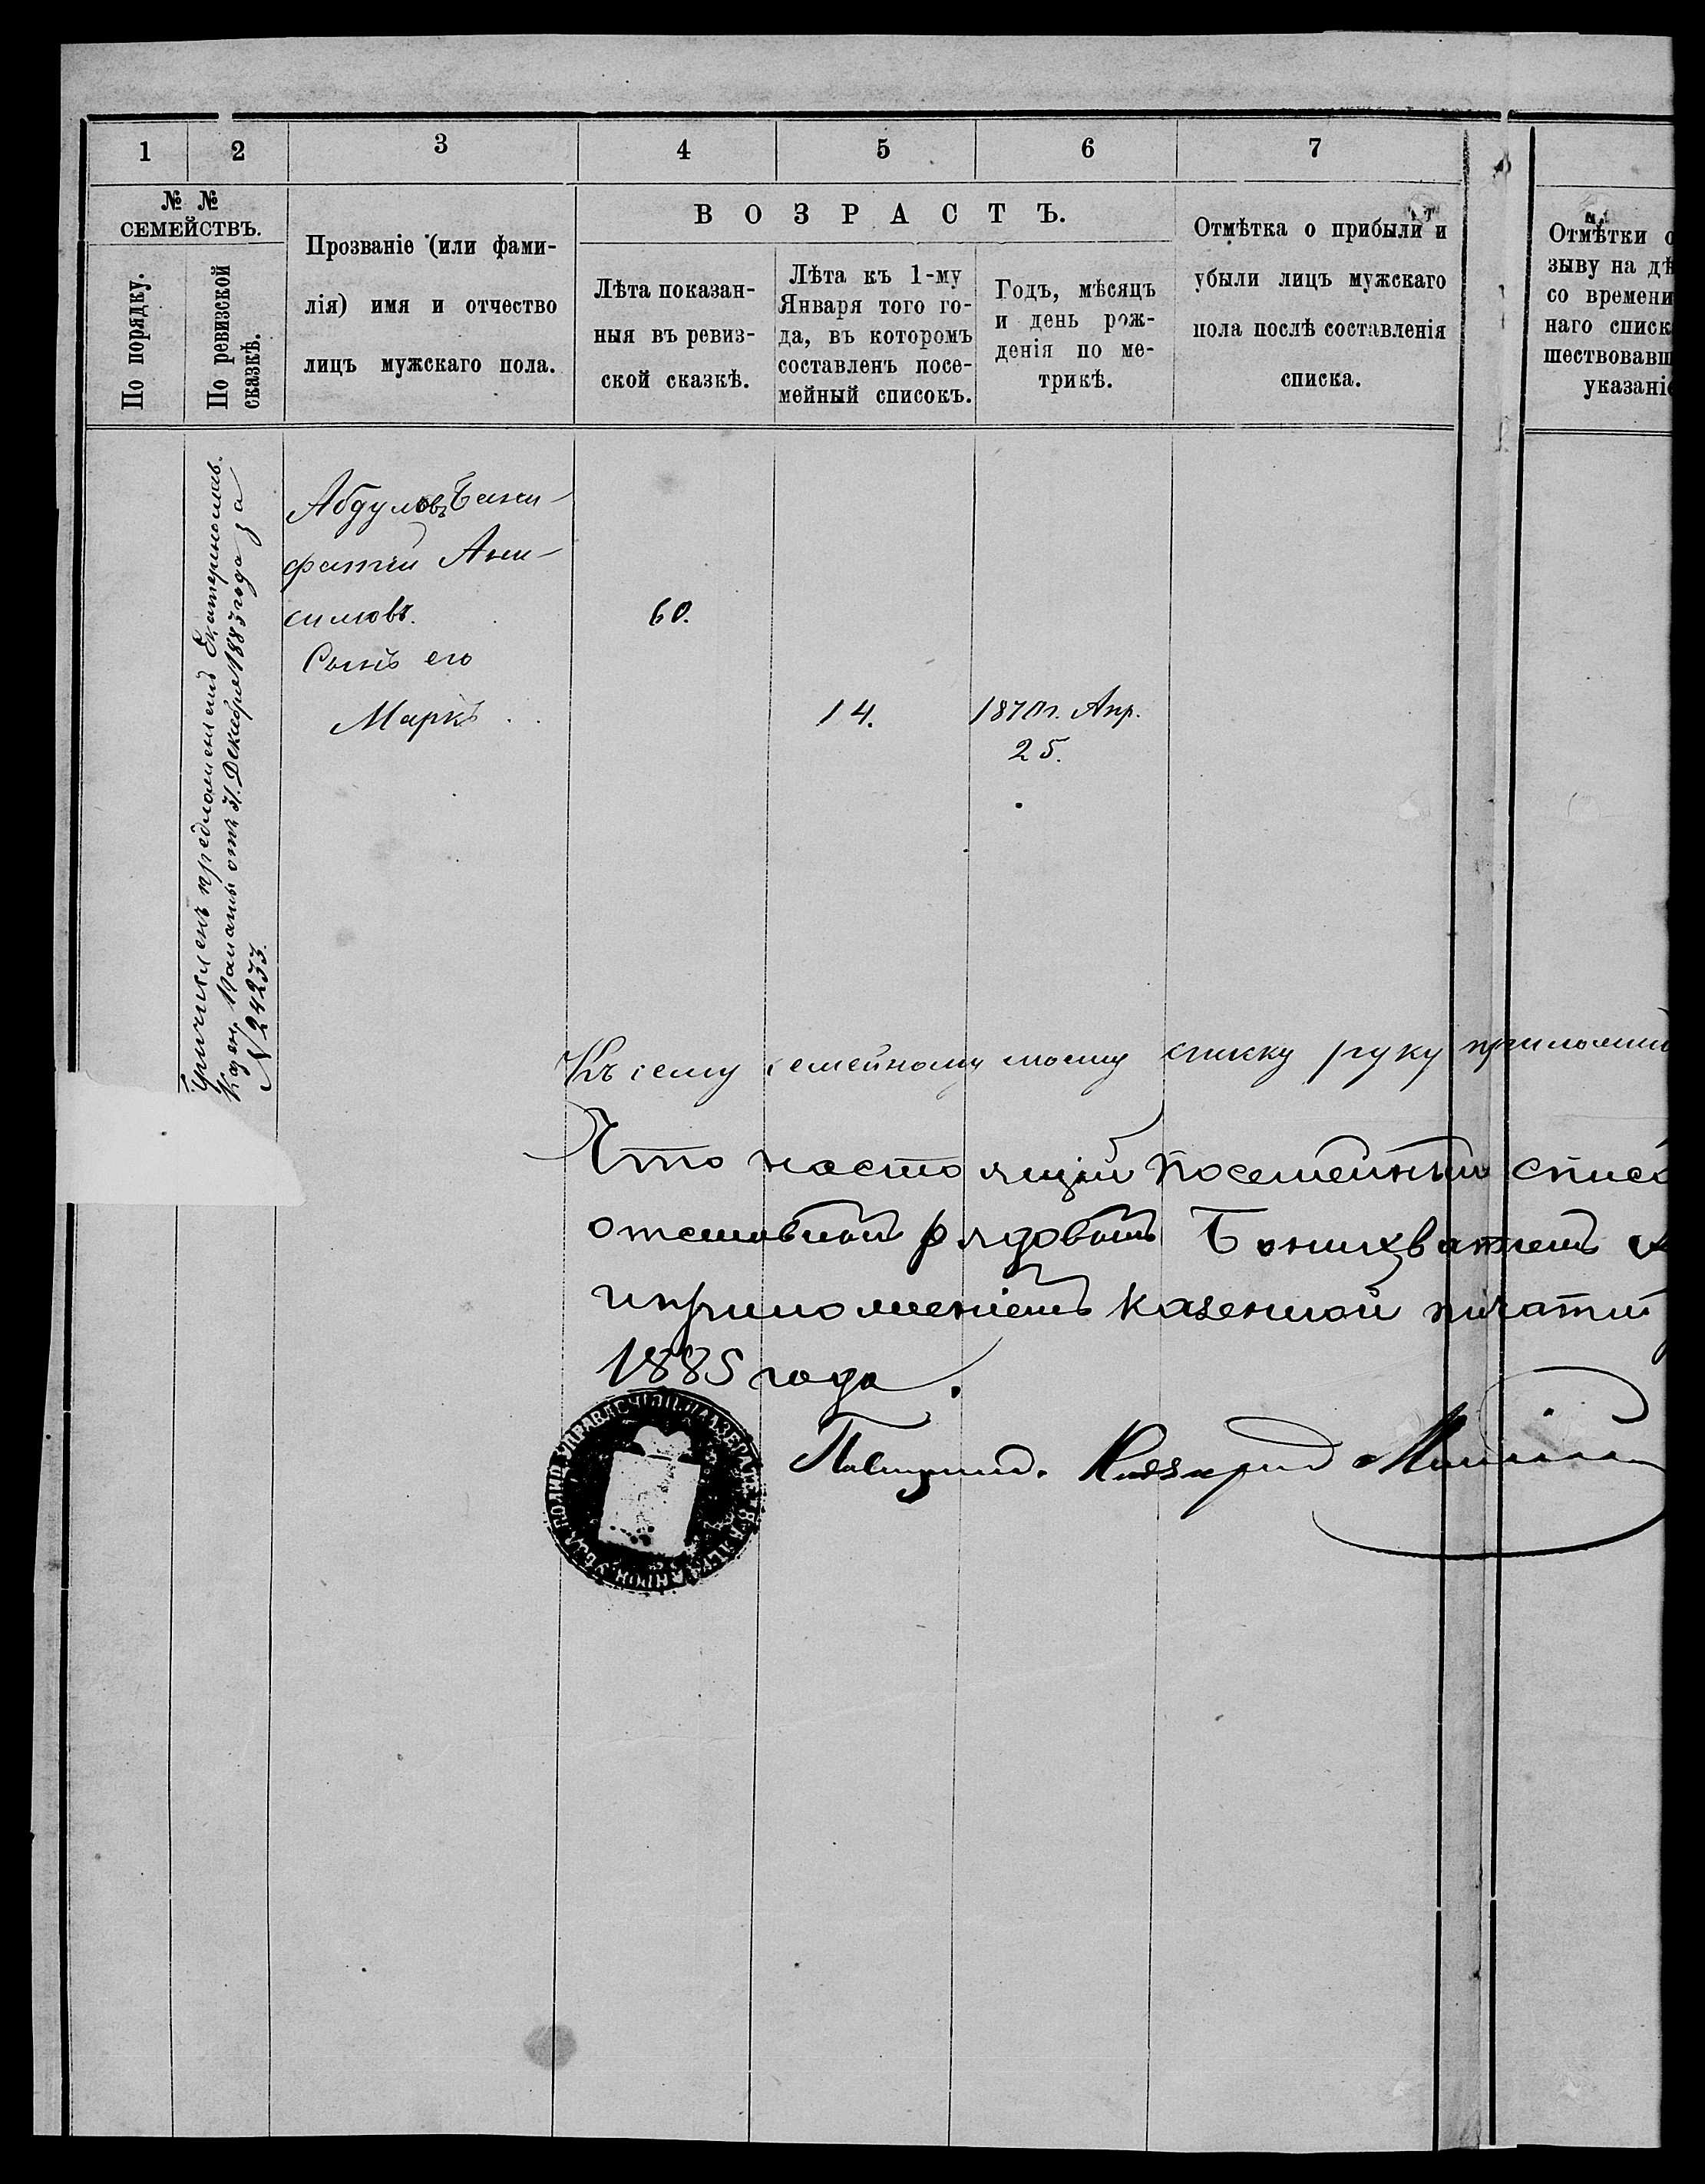 1 2 3 4 5 6 7
№ №
СЕМЕЙСТВЪ.
По порядку.
По ревизской
сказкѣ.
Прозваніе (или фами-
лія) имя и отчество
лицъ мужскаго пола.
ВОЗРАСТЪ.
Лѣта показан-
ныя въ ревиз-
ской сказкѣ.
Лѣта къ 1-му
Января того го-
да, въ которомъ
составленъ посе-
мейный списокъ.
Годъ, мѣсяцъ
и день рож-
денія по ме-
трикѣ.
Отмѣтка о прибыли и
убыли лицъ мужскаго
пола послѣ составленія
списка.
Отмѣтки о
зыву на дѣ
со времени
наго списк
шествовавш
указаніе
Причисленъ предложеніемъ Екатеринослав.
Казен. Палаты отъ 31. Декабря 1883 года за
N 24233.
Абдуловъ Бони-
фатій Ани-
симовъ. 60.
Сынъ его
Маркъ 14. 1870г. Апр.
25.
Къ сему семейному моему списку руку приложилъ
Что настоящій посемейный списо
отставнымъ рядовымъ Бонихватіемъ А
и приложеніемъ казенной печати
1885 года.